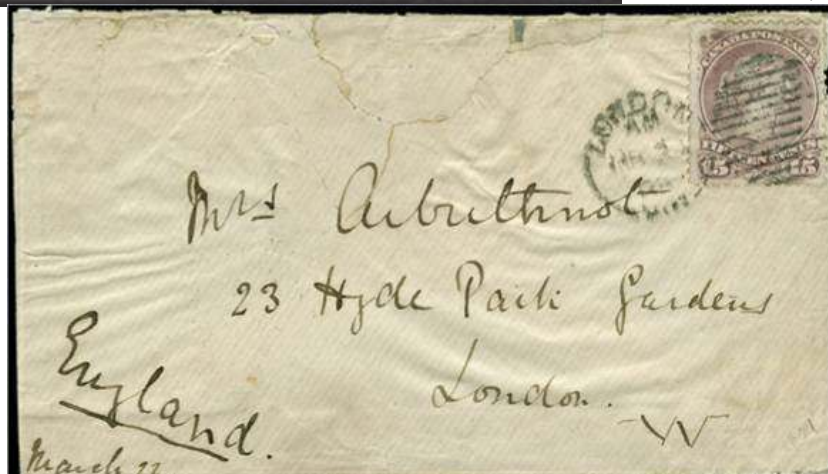 CANADA POSTAGE
FIFTEEN CENTS
15 15
LONDON
AM
Mrs Arbuthnot
23 Hyde Park Gardens
London.
W
England.
March 22